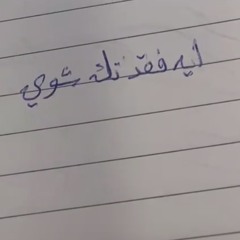 ايه فقدتك شوي